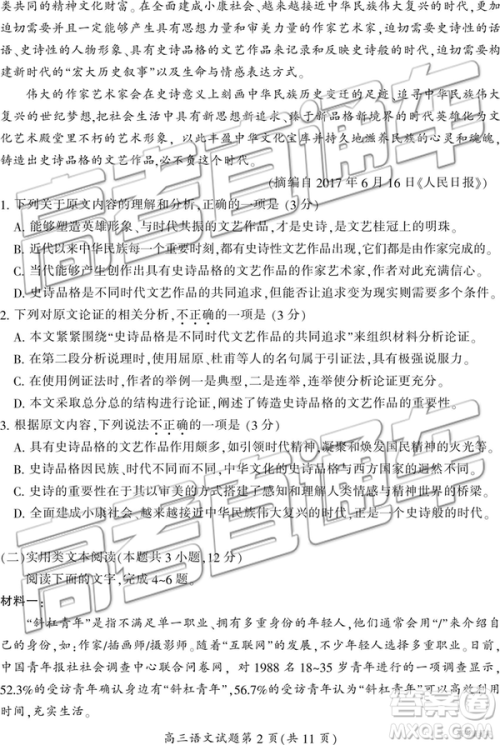 类共同的精神文化财富。在全面建成小康社会、越来越接近中华民族伟大复兴的历史时刻,更加
迫切需要并且一定会产生具有震撼人心的思想力量和审美力量的作家艺术家,迫切需要史诗性的话
语、史诗性的人物形象、具有史诗品格的文艺作品来记录和反映史诗般的伟大时代,迫切需要构
建新时代的“宏大历史叙事”以及生命与情感表达方式。
伟大的作家艺术家会在史诗意义上刻画中华民族历史变迁的足迹,追寻中华民族伟大
复兴的世纪梦想,把社会生活中有理想新追求、臻于品格新境界的时代英雄化为文
化艺术殿堂里不朽的艺术形象,以此丰盈中华文化宝库并持久地滋养民族的心灵和魂魄,
铸造出史诗品格的文艺作品,必不负这个时代。
(摘编自 2017 年 6 月 16 日《人民日报》)
1. 下列关于原文内容的理解和分析,正确的一项是 (3 分)
A. 能够塑造英雄形象、与时代共振的文艺作品,才是文艺桂冠上的明珠。
B. 近代以来中华民族每一个重要时刻,都有史诗性文艺作品出现,它们都是由作家完成的。
C. 当代能够产生创作出具有史诗品格的文艺作品的作家艺术家,作者对此充满信心。
D. 史诗品格是不同时代文艺作品的共同追求,但其化成的影响却不尽相同。
2. 下列对原文论证的相关分析,不正确的一项是 (3 分)
A. 本文紧紧围绕“史诗品格是不同时代文艺作品的共同追求”来组织材料分析论证。
B. 在第二段分析说理时,使用屈原、杜甫等人的事例,论据充分,论证有力。
C. 在使用例证法时,作者的举例一详一略,通过对比分析论证更为充分。
D. 本文采取总分总的结构进行论证,阐述了铸造史诗品格的文艺作品的重要性。
3. 根据原文内容,下列说法不正确的一项是 (3 分)
A. 具有史诗品格的文艺作品作用颇多,如引领时代精神,凝聚和焕发国民精神的火光等。
B. 史诗品格因民族、时代不同而不同,中华文化的史诗品格与西方国家的史诗品格迥异。
C. 史诗的重要性在于其以审美的方式架设了世界了解和理解人类情感与精神世界的桥梁。
D. 全面建成小康社会、越来越接近中华民族伟大复兴的今天,是一个史诗般的伟大时代。
(二)实用类文本阅读(本题共 3 小题,12 分)
阅读下面的文字,完成 4~6 题。
材料一:
“斜杠青年”是指不满足单一职业、拥有多重身份的人,他们通常会用“/”来介绍自
己的身份,如:作家/插画师/摄影师。随着“互联网”的发展,不少年轻人投身其中。日前,
中国青年报社社会调查中心联合问卷网,对 1988 名 18~35 岁青年进行的一项调查显示,
52.3%的受访青年确认身边有“斜杠青年”,56.7%的受访青年认为这可以让他们利用闲暇时
间,充实生活。
高三语文试题第 2 页(共 11 页)